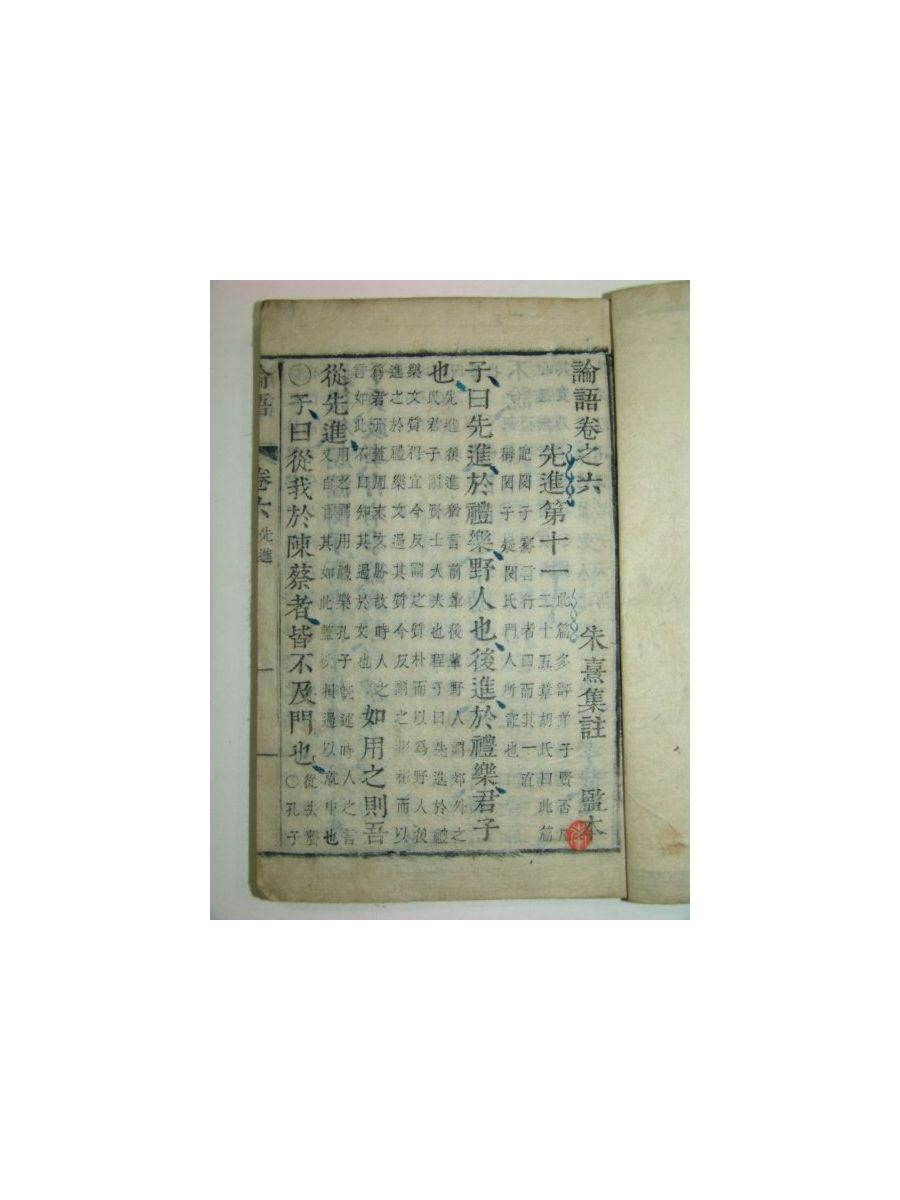 論語卷之六 朱熹集註 監本
先進第十一 此篇多評弟子賢否凡二十五章胡氏曰此篇
記閔子騫言行者四而其一直稱閔子疑閔氏門人所記也
子曰先進於禮樂野人也後進於禮樂君子
也 先進後進猶言前輩後輩野人謂郊外之民君子謂賢士大夫也程子曰先進於禮
樂文質得宜今反謂之質朴而以爲野人後進之於禮樂文過其質今反謂之彬彬而以
爲君子蓋周末文勝故時人之言如此不自知其過於文也 如用之則吾
從先進 用之謂用禮樂孔子旣述時人之言又自言其如此蓋欲損過以就中也
○子曰從我於陳蔡者皆不及門也 從去聲○孔子
論語 卷六 先進